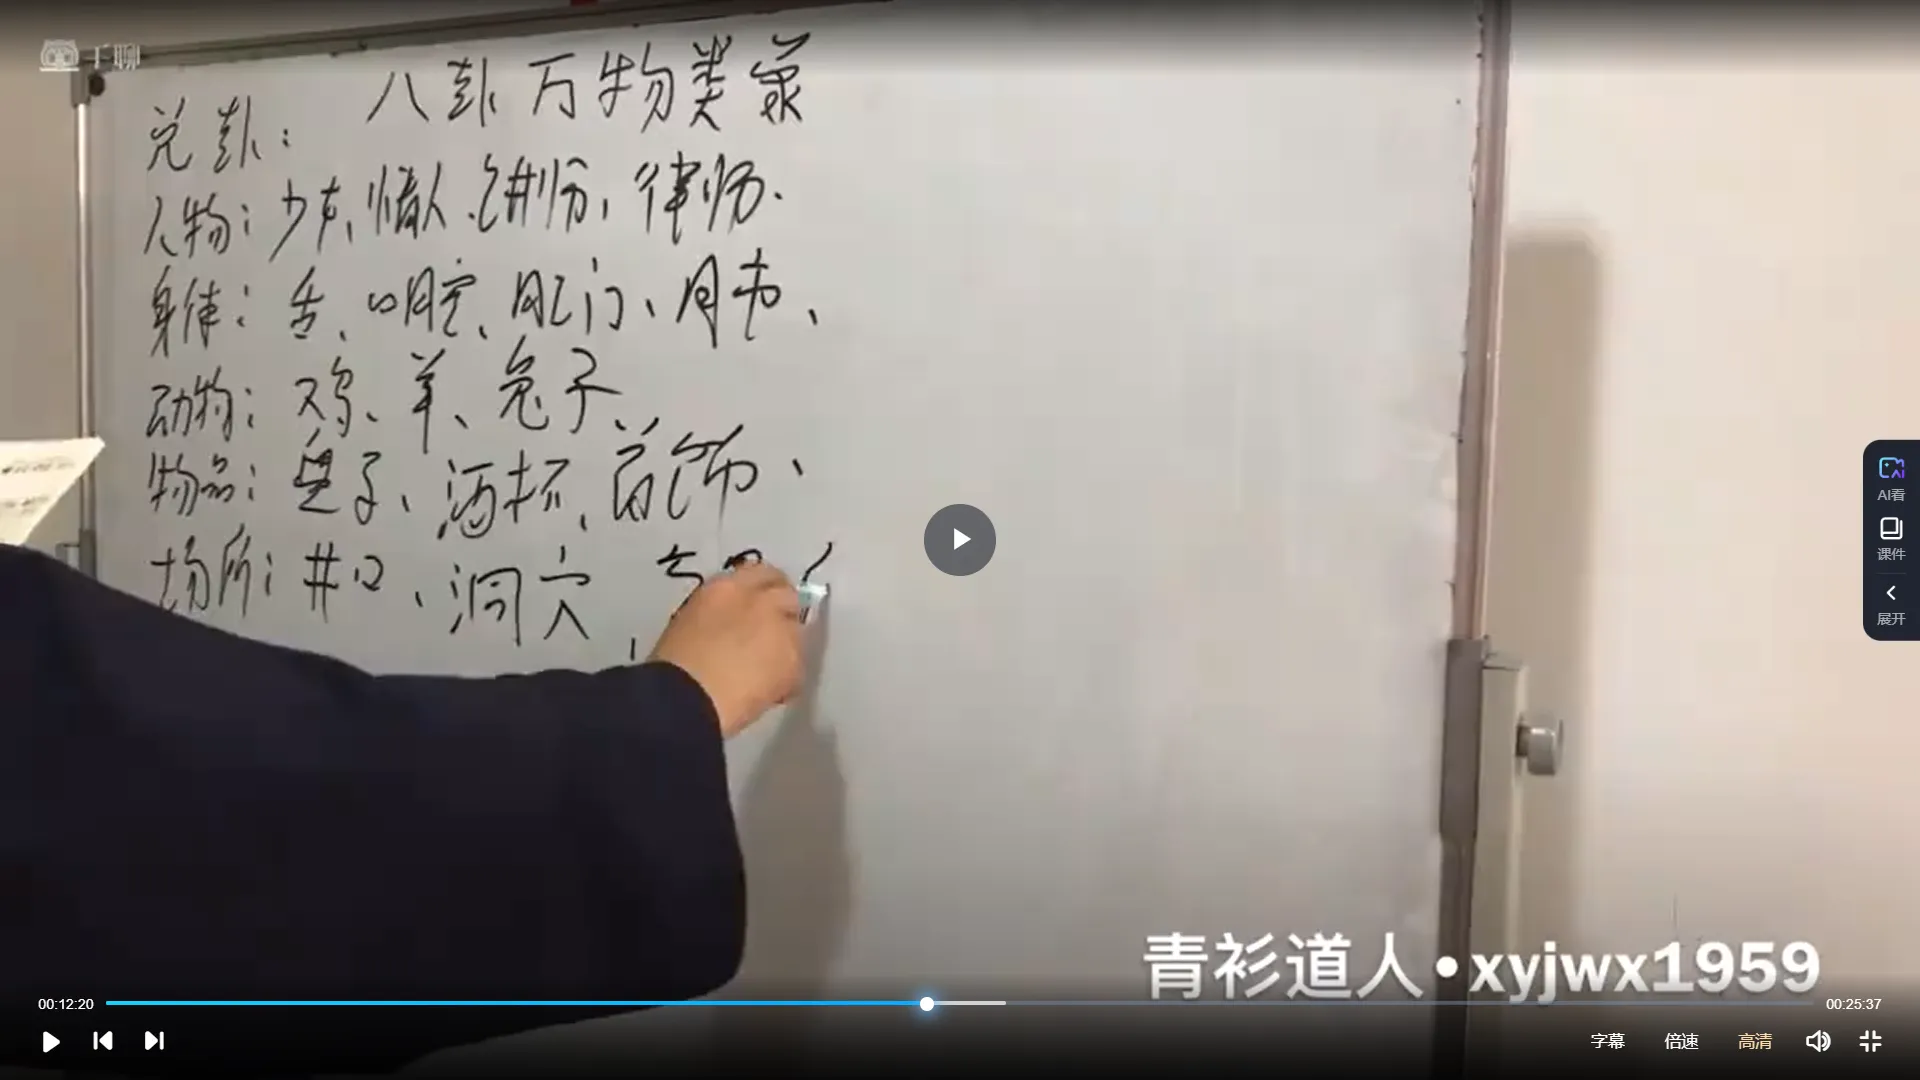 千聊
八卦万物类象
兑卦：
人物：少女、情人、讲师、律师、
身体：舌、口腔、肛门、肺、
动物：鸡、羊、兔子、
物品：盘子、酒杯、首饰、
场所：井口、洞穴、
AI看
课件
展开
青衫道人•xyjwx1959
00:12:20
00:25:37
字幕 倍速 高清